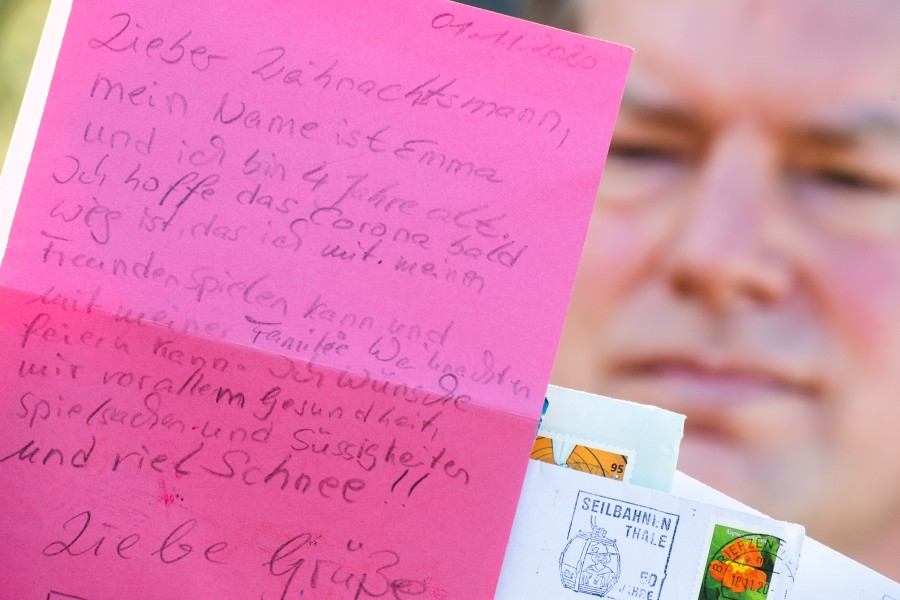 01.11.2020
Lieber Waihnachtsmann,
mein Name ist Emma
und ich bin 4 Jahre alt.
Ich hoffe das Corona bald
weg ist, das ich mit meinen
Freunden spielen kann und
mit meiner Familie Weihnachten
feiern kann. Ich wünsche
mir vor allem Gesundheit,
Spielsachen und Süssigkeiten
und viel Schnee!!
Liebe Grüße
95
SEILBAHNEN
THALE
50
JAHRE
BRIEFZENT
12.11.20